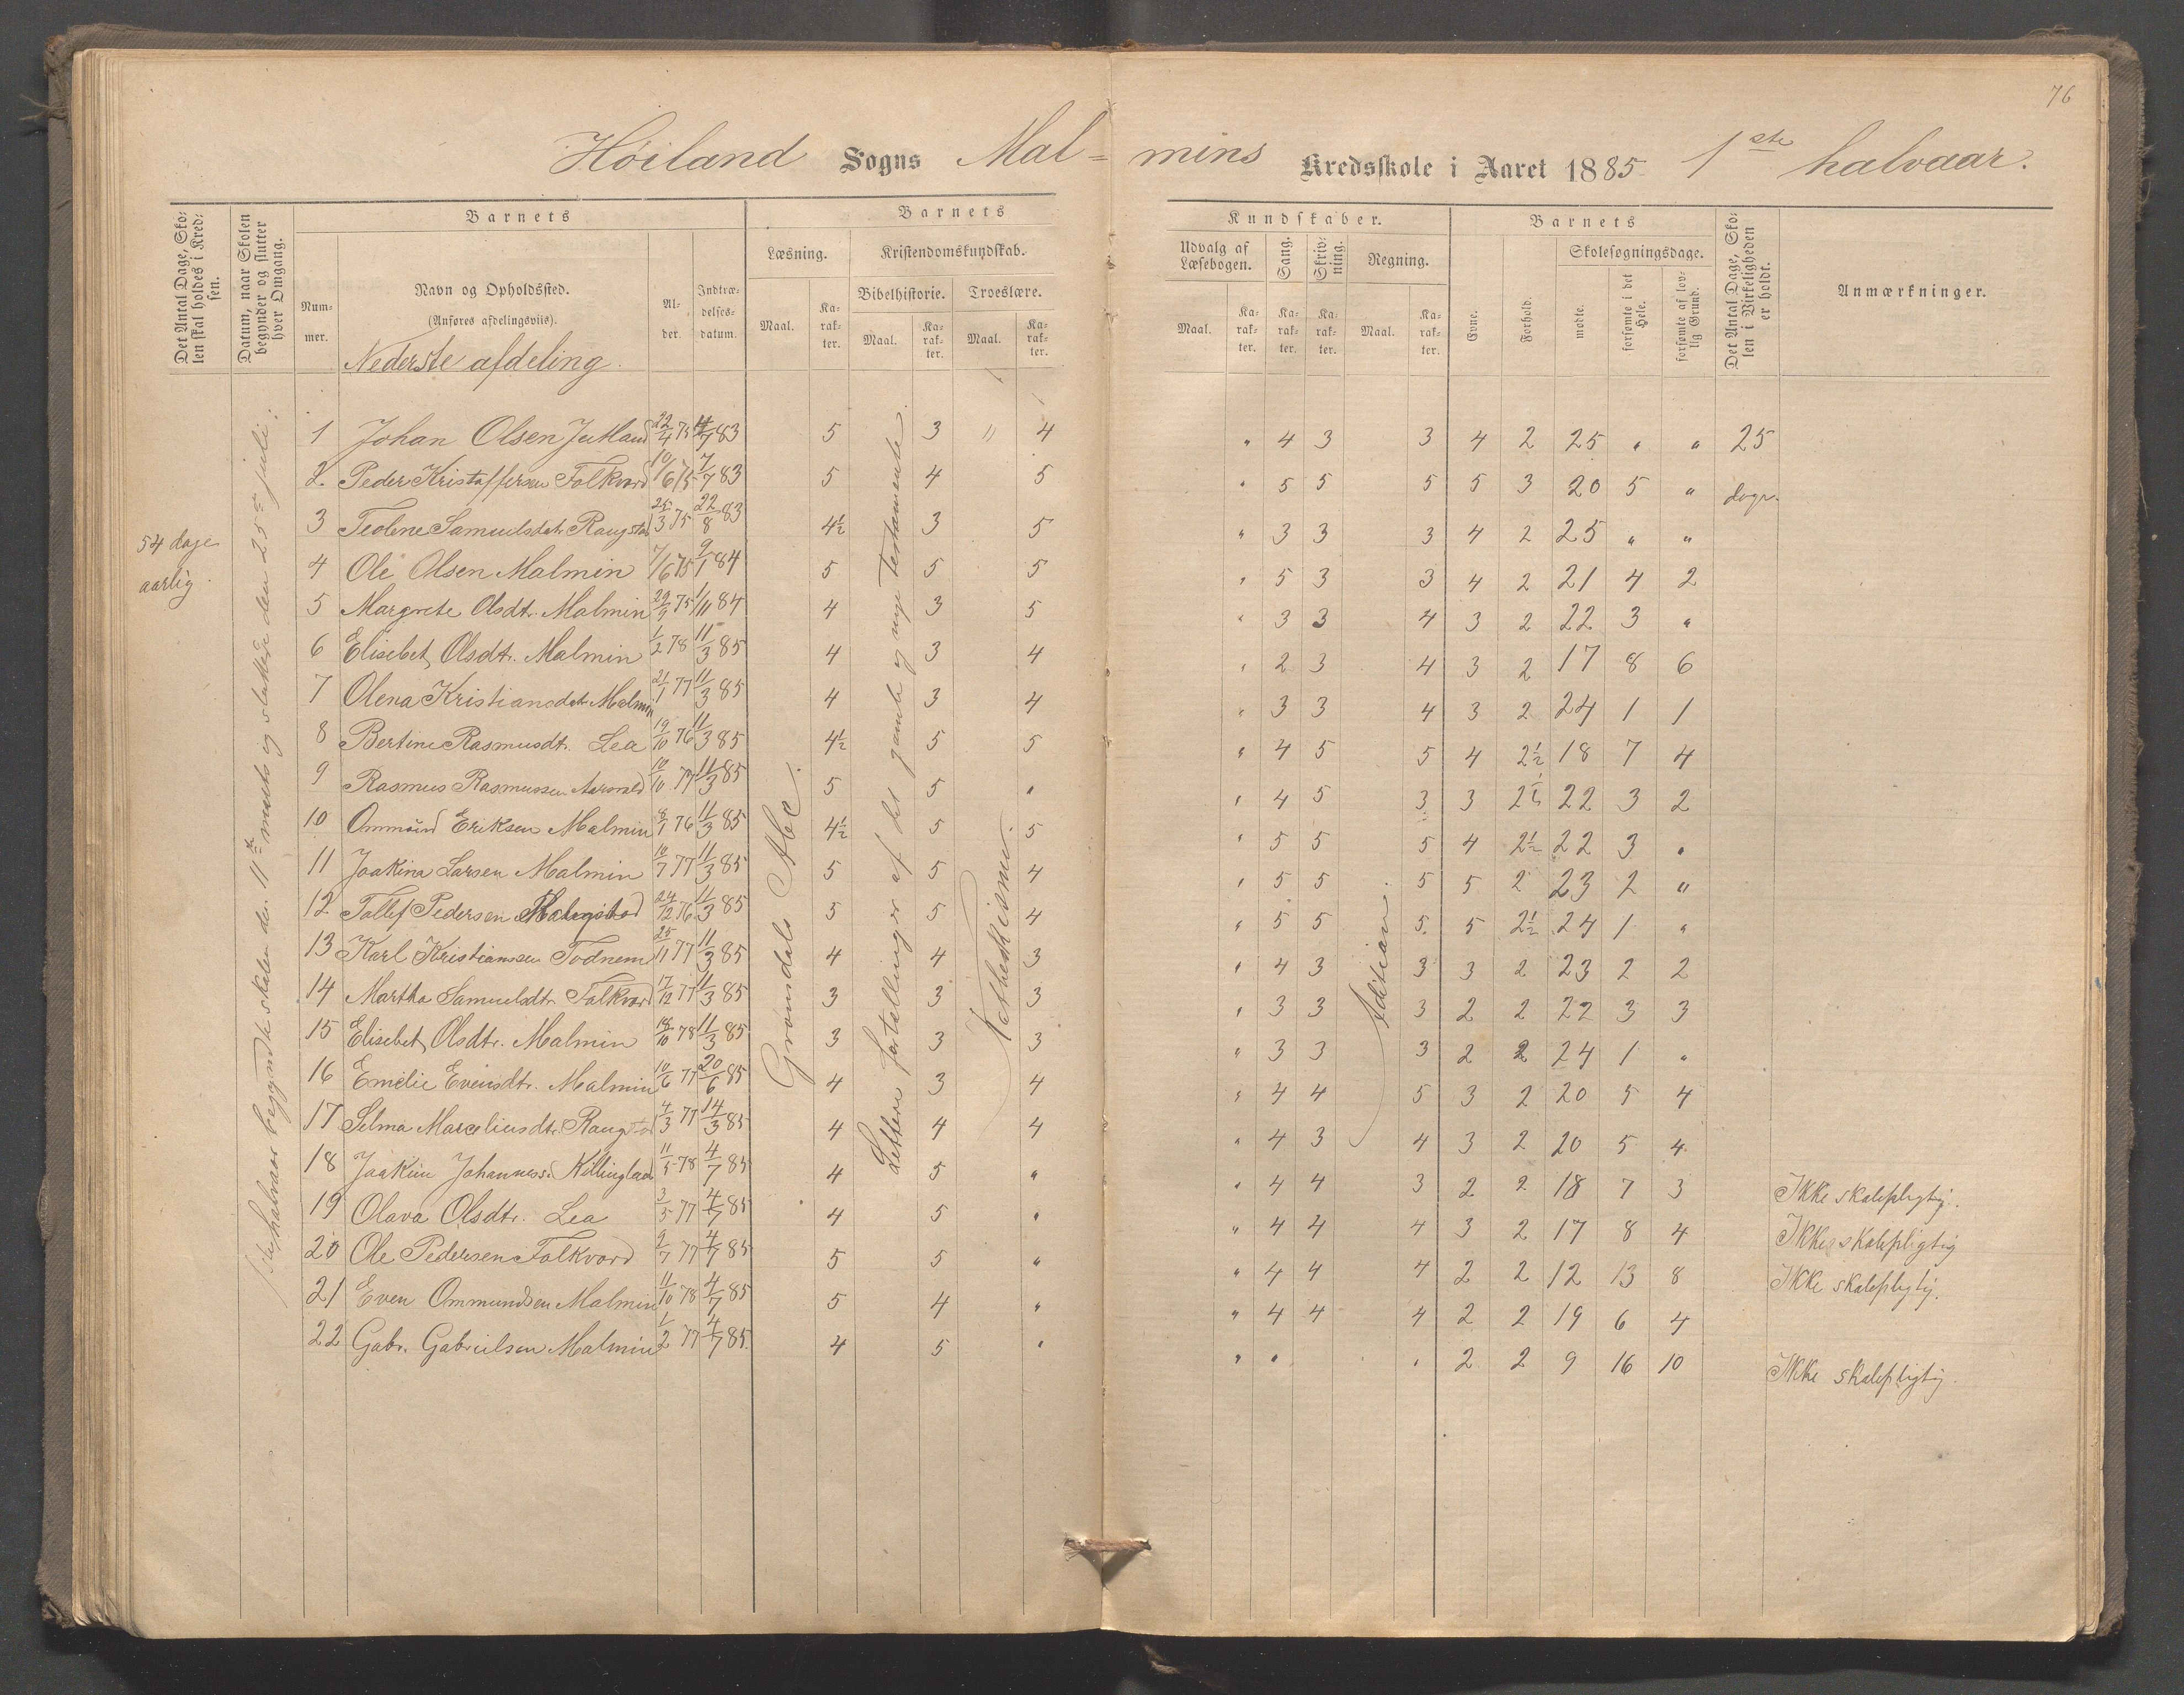 76
Høiland Sogns Mal= mins Kredsskole i Aaret 1885 1ste halvaar.
Det Antal Dage, Skolen skal holdes i Kredsen.
Datum, naar Skolen begynder og slutter hver Omgang.
Barnets
Nummer.
Navn og Opholdssted.
(Anføres afdelingsviis).
Nederste afdeling.
Alder.
Indtrædelsesdatum.
Barnets Kundskaber.
Læsning.
Maal.
Karakter.
Kristendomskundskab.
Bibelhistorie.
Maal.
Karakter.
Troeslære.
Maal.
Karakter.
Udvalg af Læsebogen.
Maal.
Karakter.
Sang.
Karakter.
Skrivning.
Karakter.
Regning.
Maal.
Karakter.
Barnets
Evne.
Forhold.
Skolesøgningsdage.
mødte.
forsømte i det Hele.
forsømte af lovlig Grund.
Det Antal Dage, Skolen i Virkeligheden er holdt.
Anmærkninger.
54 dage
aarlig.
1ste halvaar begyndte skolen den 11te marts og sluttede den 25de juli.
Grøndals Abc.
Lettere fortellinger af det gamle og nye testamente.
Kathekismi.
Adition.
1 Johan Olsen 22/4 75 4/7 83 5 3 " 4 " 4 3 3 4 2 25 " " 25
2. Peder Kristoffersen Folkvord 10/6 75 7/7 83 5 4 5 " 5 5 5 5 3 20 5 " dage.
3 Teoline Samuelsdtr. Raugstad 25/3 75 22/8 83 4½ 3 5 " 3 3 3 4 2 25 " "
4 Ole Olsen Malmin 7/6 75 9/1 84 5 5 5 " 5 3 3 4 2 21 4 2
5 Margrete Olsdtr. Malmin 29/9 75 1/11 84 4 3 5 " 3 3 4 3 2 22 3 "
6 Elisebet Olsdtr. Malmin 1/2 78 11/3 85 4 3 4 " 2 3 4 3 2 17 8 6
7 Olena Kristiansdatr. Malmin 21/1 77 11/3 85 4 3 4 " 3 3 4 3 2 24 1 1
8 Bertine Rasmusdtr. Lea 19/10 76 11/3 85 4½ 5 5 " 4 5 5 4 2½ 18 7 4
9 Rasmus Rasmussen 10/10 77 11/3 85 5 5 " " 4 5 3 3 2½ 22 3 2
10 Ommund Eriksen Malmin 8/1 76 11/3 85 4½ 5 5 " 5 5 5 4 2½ 22 3 "
11 Joakina Larsen Malmin 10/7 77 11/3 85 5 5 4 " 5 5 5 5 2 23 2 "
12 Tollef Pedersen 24/12 76 11/3 85 5 5 4 " 5 5 5. 5 2½ 24 1 "
13 Karl Kristianssen Todnem 25/11 77 11/3 85 4 4 3 " 4 3 3 3 2 23 2 2
14 Martha Samuelsdtr. Folkvord 17/12 77 11/3 85 3 3 3 " 3 3 3 2 2 22 3 3
15 Elisebet Olsdtr. Malmin 18/10 78 11/3 85 3 3 3 " 3 3 3 2 2 24 1 "
16 Emelie Evensdtr. Malmin 10/6 77 20/6 85 4 3 4 " 4 4 5 3 2 20 5 4
17 Selma Marceliusdtr. Raugstad 4/3 77 14/3 85 4 4 4 " 4 3 4 3 2 20 5 4
18 Joakim Johanness. Killingland 11/5 78 4/7 85 4 5 " " 4 4 3 2 2 18 7 3 Ikke skolepligtig.
19 Olava Olsdtr. Lea 3/5 77 4/7 85 4 5 " " 4 4 4 3 2 17 8 4 Ikke skolepligtig
20 Ole Pedersen Folkvord 9/7 77 4/7 85 5 5 " " 4 4 4 2 2 12 13 8 Ikke skolepligtig.
21 Even Ommundsen Malmin 11/10 78 4/7 85 5 4 " " 4 4 4 2 2 19 6 4
22 Gabr. Gabrielsen Malmin 1/2 77 4/7 85. 4 5 " " " " 2 2 9 16 10 Ikke skolepligtig.